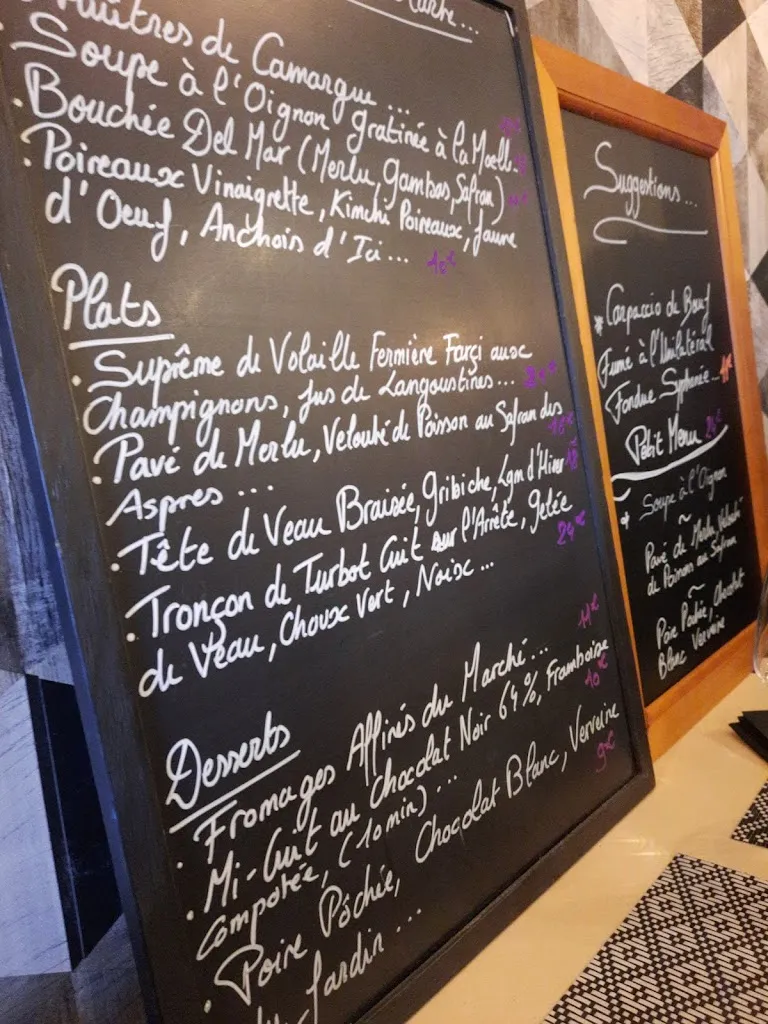 Huîtres de Camargue ...
Soupe à l'Oignon gratinée à la Moelle
. Bouchée Del Mar (Merlu, Gambas, Safran)
. Poireaux Vinaigrette, Kimchi Poireaux, Jaune
d'Oeuf, Anchois d'Ici ... 10€
Plats
. Suprême de Volaille Fermière Farçi aux
Champignons, Jus de Langoustines ...
. Pavé de Merlu, Velouté de Poisson au Safran des
Aspres ...
. Tête de Veau Braisée, Gribiche, Lgm d'Hiver 18€
. Tronçon de Turbot Cuit sur l'Arrête, Gelée
de Veau, Choux Vert, Noix ... 24€
Desserts
. Fromages Affinés du Marché ... 11€
. Mi-Cuit au Chocolat Noir 64%, Framboise
Compotée, (10min) ... 10€
. Poire Pôchée, Chocolat Blanc, Verveine
Jardin ... 9€
Suggestions ...
* Carpaccio de Boeuf
Fumé à l'Unilatéral
Fondue Syphonée ...
Petit Menu
* Soupe à l'Oignon
~
Pavé de Merlu, Velouté
de Poisson au Safran
~
Poire Pochée, Chocolat
Blanc Verveine